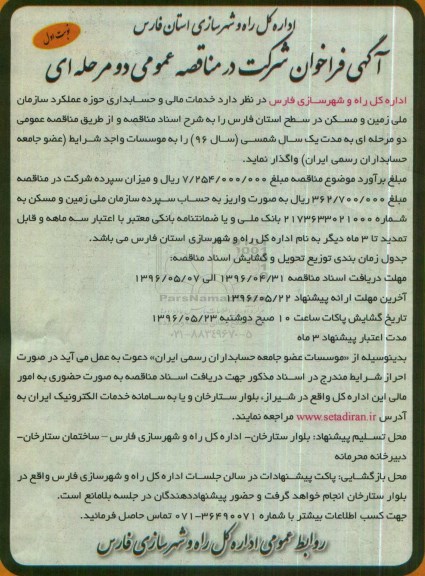 اداره کل راه و شهرسازی استان فارس
نوبت اول
آگهی فراخوان شرکت در مناقصه عمومی دو مرحله ای
اداره کل راه و شهرسازی فارس در نظر دارد خدمات مالی و حسابداری حوزه عملکرد سازمان
ملی زمین و مسکن در سطح استان فارس را به شرح اسناد مناقصه و از طریق مناقصه عمومی
دو مرحله ای به مدت یک سال شمسی (سال ۹۶) را به موسسات واجد شرایط (عضو جامعه
حسابداران رسمی ایران) واگذار نماید.
مبلغ برآورد موضوع مناقصه مبلغ ۷/۲۵۴/۰۰۰/۰۰۰ ریال و میزان سپرده شرکت در مناقصه
مبلغ ۳۶۲/۷۰۰/۰۰۰ ریال به صورت واریز به حساب سپرده سازمان ملی زمین و مسکن به
شماره ۲۱۷۳۶۳۳۰۲۱۰۰۰ بانک ملی و یا ضمانتنامه بانکی معتبر با اعتبار سه ماهه و قابل
تمدید تا ۳ ماه دیگر به نام اداره کل راه و شهرسازی استان فارس می باشد.
جدول زمان بندی توزیع تحویل و گشایش اسناد مناقصه:
مهلت دریافت اسناد مناقصه ۱۳۹۶/۰۴/۳۱ الی ۱۳۹۶/۰۵/۰۷
آخرین مهلت ارائه پیشنهاد ۱۳۹۶/۰۵/۲۲
تاریخ گشایش پاکات ساعت ۱۰ صبح دوشنبه ۱۳۹۶/۰۵/۲۳
مدت اعتبار پیشنهاد ۳ ماه
بدینوسیله از «موسسات عضو جامعه حسابداران رسمی ایران» دعوت به عمل می آید در صورت
احراز شرایط مندرج در اسناد مذکور جهت دریافت اسناد مناقصه به صورت حضوری به امور
مالی این اداره کل واقع در شیراز، بلوار ستارخان و یا به سامانه خدمات الکترونیک ایران به
آدرس www.setadiran.ir مراجعه نمایند.
محل تسلیم پیشنهاد: بلوار ستارخان- اداره کل راه و شهرسازی فارس – ساختمان ستارخان-
دبیرخانه محرمانه
محل بازگشایی: پاکت پیشنهادات در سالن جلسات اداره کل راه و شهرسازی فارس واقع در
بلوار ستارخان انجام خواهد گرفت و حضور پیشنهاددهندگان در جلسه بلامانع است.
جهت کسب اطلاعات بیشتر با شماره ۳۶۴۹۰۰۷۱-۰۷۱ تماس حاصل فرمائید.
روابط عمومی اداره کل راه و شهرسازی فارس